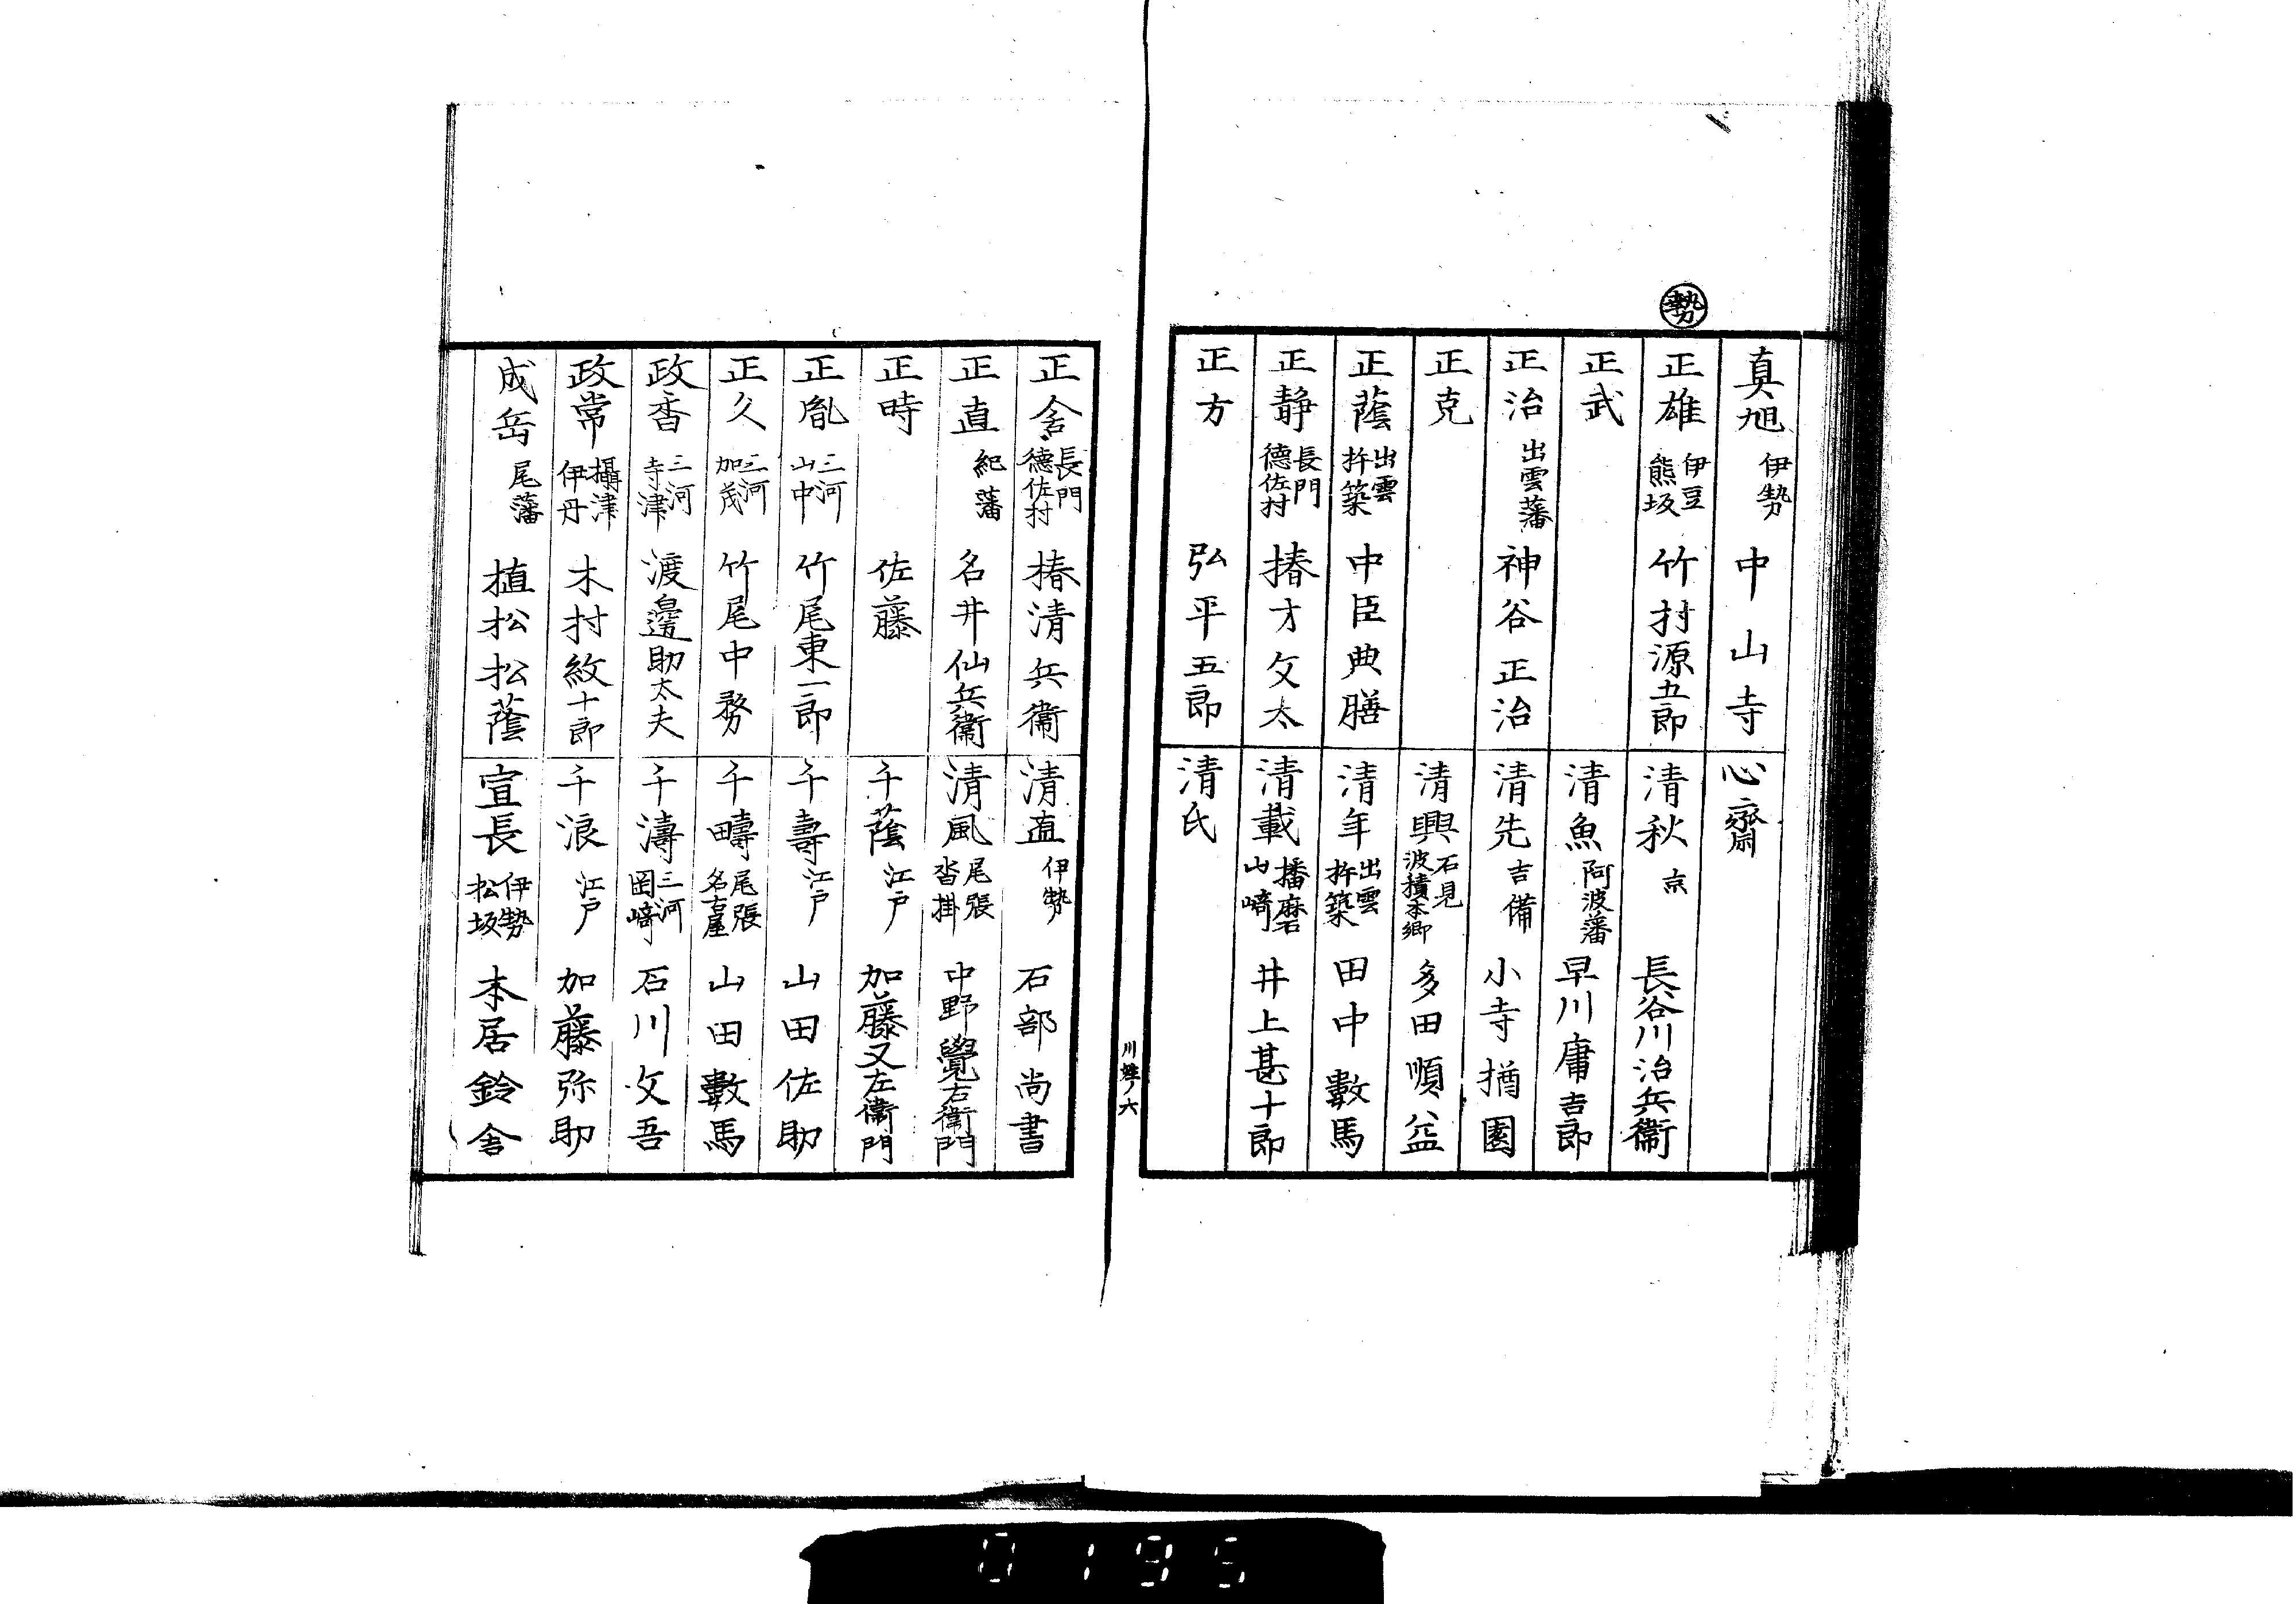 勢
真旭 伊勢 中山寺
正雄 伊豆熊坂 竹村源五郎
正武
正治 出雲藩 神谷正治
正克
正蔭 出雲杵築 中臣典膳
正静 長門德佐村 椿才文太
正方 弘平五郎
心齋
清秋 京 長谷川治兵衞
清魚 阿波藩 早川庸吉郎
清先 吉備 小寺楢園
清興 石見波積本郷 多田順益
清年 出雲杵築 田中數馬
清載 播磨山﨑 井上甚十郎
清氏
川姓ノ六
正舍 長門德佐村 椿清兵衞
正直 紀藩 名井仙兵衞
正時 佐藤
正胤 三河山中 竹尾東一郎
正久 三河加茂 竹尾中務
政香 三河寺津 渡邊助太夫
政常 攝津伊丹 木村紋十郎
成岳 尾藩 植松松蔭
清直 伊勢 石部尚書
清風 尾張沓掛 中野覺右衞門
千蔭 江戸 加藤又左衞門
千壽 江戸 山田佐助
千疇 尾張名古屋 山田數馬
千濤 三河岡﨑 石川文吾
千浪 江戸 加藤弥助
宣長 伊勢松坂 本居鈴舍
0195